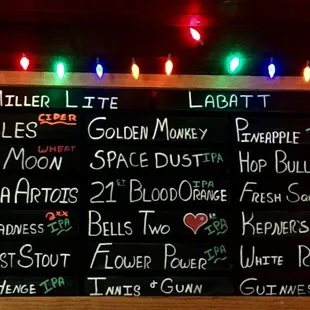 MILLER LITE LABATT
LES CIDER GOLDEN MONKEY PINEAPPLE
MOON WHEAT SPACE DUST IPA HOP BULL
A ARTOIS 21ST BLOOD ORANGE IPA FRESH SQ
ADNESS 2XX IPA BELLS TWO IPA KEPNER'S
ST STOUT FLOWER POWER IPA WHITE R
HENGE IPA INNIS & GUNN GUINNES